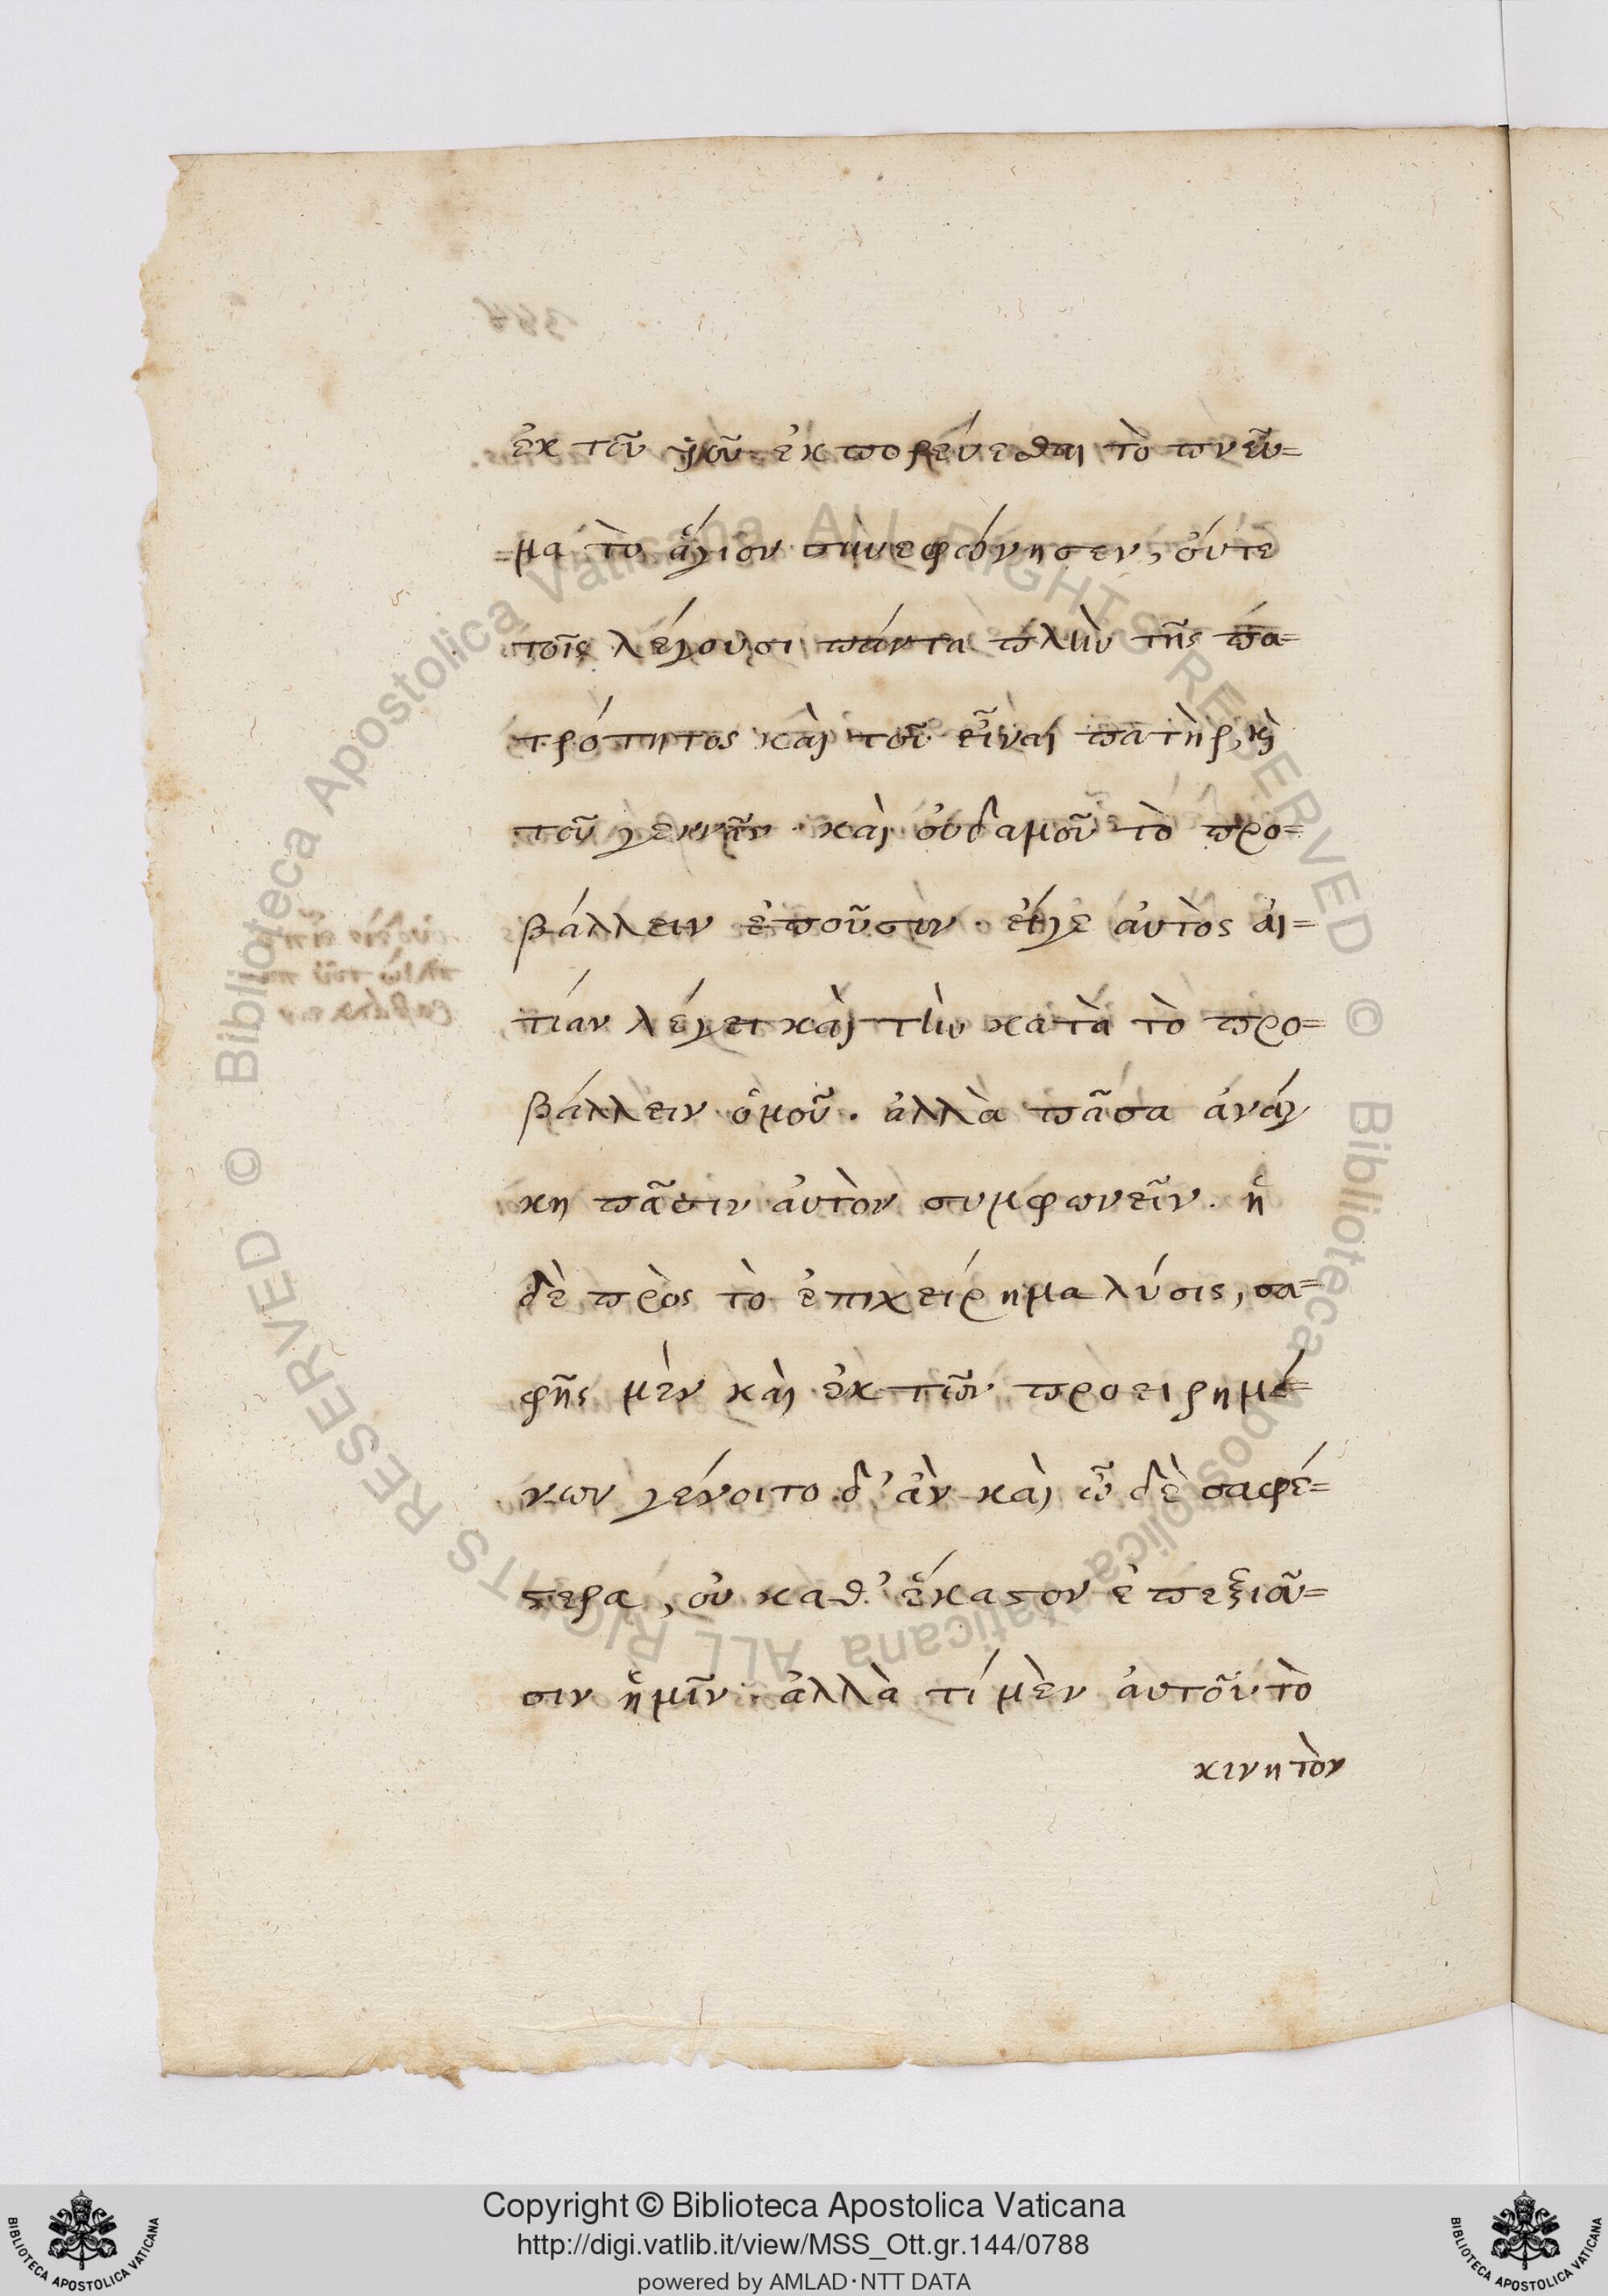 ἐκ τοῦ ὑιοῦ ἐκπορεύεσθαι τὸ πνεῦ=
=μα τὸ ἅγιον συνεφώνησεν, οὔτε
τοῖς λέγουσι πάντα πλὴν τῆς πα=
τρότητος καὶ τοῦ εἶναι πατὴρ, κὶ
τοῦ γεννᾶν · καὶ οὐδαμοῦ τὸ προ=
βάλλειν ἐποῦσιν · εἴγε ἀυτὸς ἀι=
τίαν λέγει καὶ τὴν κατὰ τὸ προ=
βάλλειν ὁμοῦ . ἀλλὰ πᾶσα ἀνάγ
κη πᾶσιν ἀυτὸν συμφωνεῖν . ἡ
δὲ πρὸς τὸ ἐπιχείρημα λύσις, σα=
φῆς μὲν καὶ ἐκ τῶν προειρημέ=
νων γένοιτο δ' ἂν καὶ ὧδε σαφέ=
ϛερα, οὐ καθ' ἕκαϛον ἐπεξιοῦ=
σιν ἡμῖν · ἀλλὰ τί μὲν ἀυτοῦ τὸ
κινητὸν
Copyright © Biblioteca Apostolica Vaticana
http://digi.vatlib.it/view/MSS_Ott.gr.144/0788
powered by AMLAD·NTT DATA
BIBLIOTECA APOSTOLICA VATICANA
BIBLIOTECA APOSTOLICA VATICANA
© Biblioteca Apostolica Vaticana ALL RIGHTS RESERVED © Biblioteca Apostolica Vaticana ALL RIGHTS RESERVED